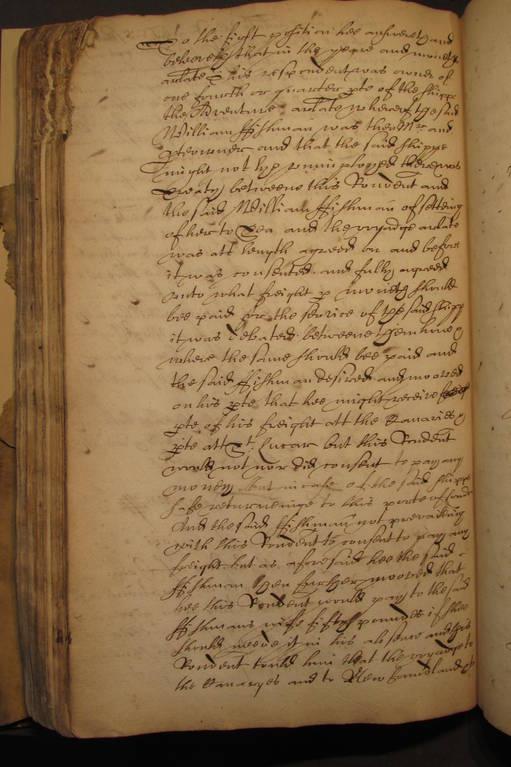 To the first position hee answereth and
beleeveth that in the yeare and moneth
arlate this respondent was owner of
one fourth or quarter pte of the shipp
the Adventure arlate whereof the said
William ffishman was then Mr and
pteowner and that the said shippe
might not lye unimployed there was
Treaty betweene this Rondent and
the said William ffishman of setting
of her to Sea and the voyadge arlate
was att length agreed on and before
it was consented and fully agreed
unto what freight p moneth should
bee paid for the service of the said shipp
it was debated betweene them two
where the same should bee paid and
the said ffishman desired and mooved
on his pte that hee might receive
pte of his freight att the Canaries &
pte att St Lucar but this Rondent
would not nor did consent to pay any
money but in case of the said shipps
safe returneinge to this porte of London
And the said ffishman not prevailing
with this Rondent to consent to pay any
freight but as aforesaid hee the said
ffishman then further mooved that
hee this Rondent would pay to the said
ffishmans wife fifty poundes if shee
should neede it in his absence and this
Rondent tould him that the voyadge to
the Canaryes and to New found land